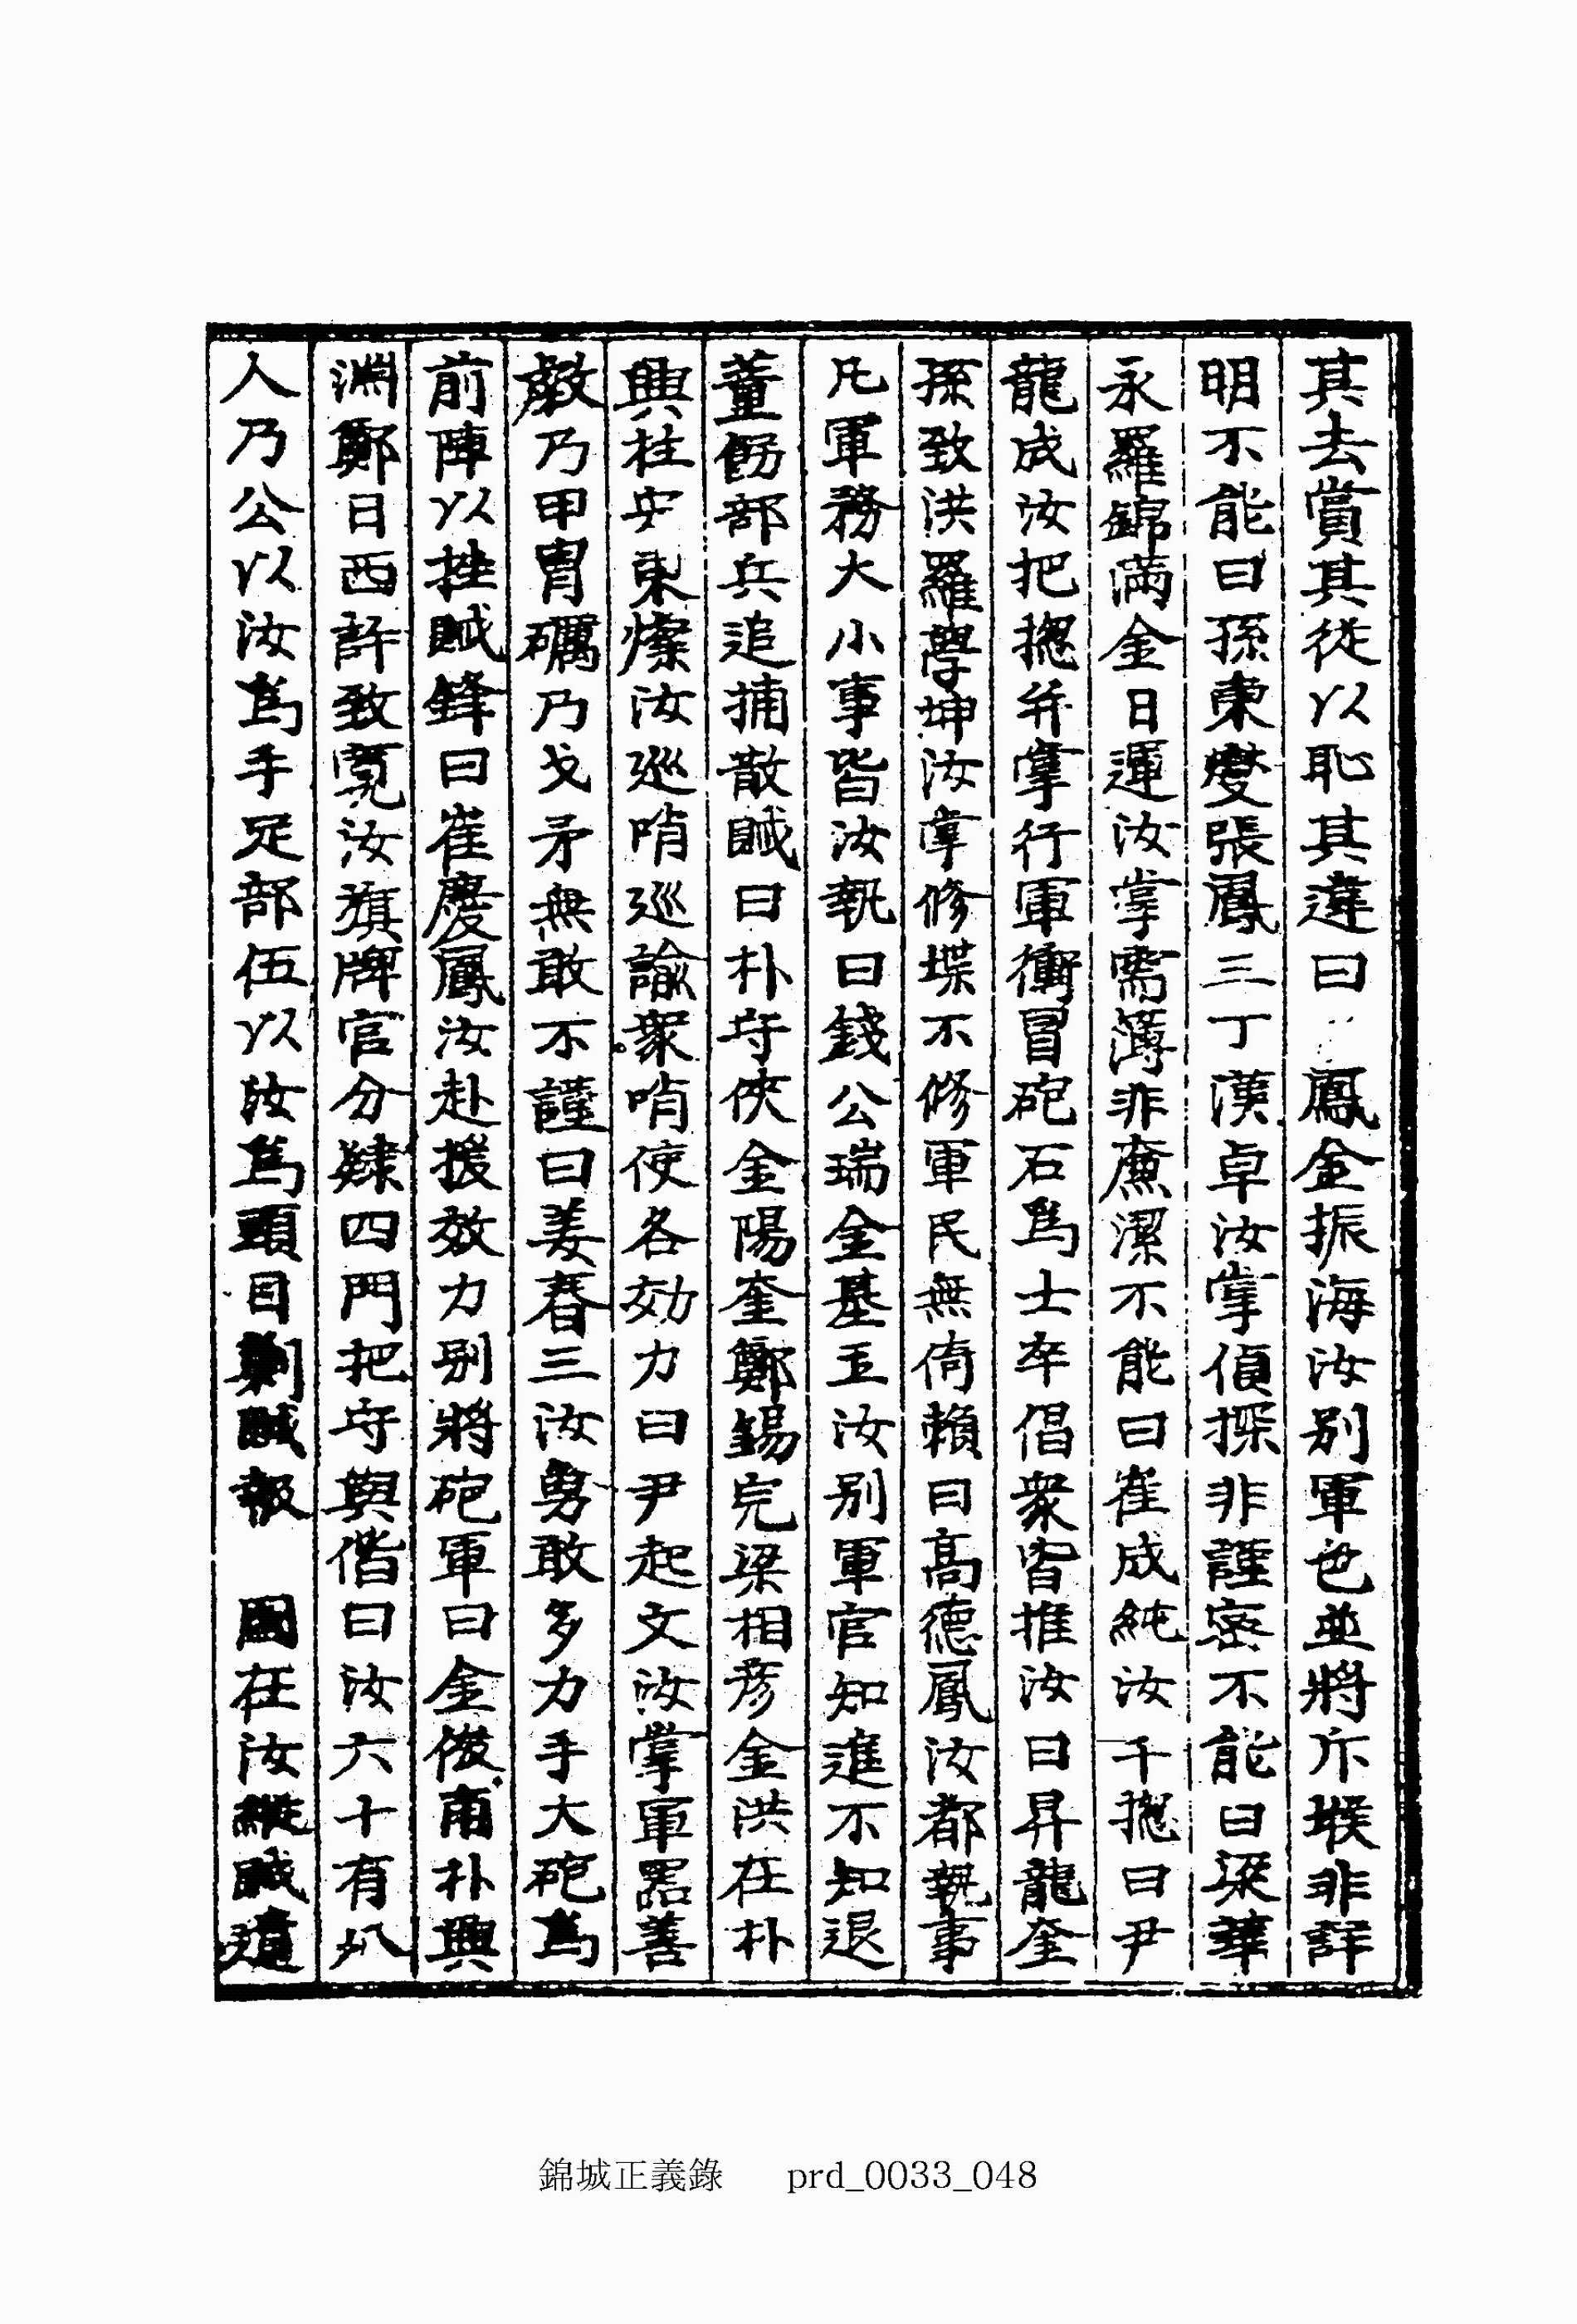 其去賞其從以恥其違曰 鳳金振海汝別軍色並將斥堠非詳
明不能曰孫東燮張鳳三丁漢卓汝掌偵探非謹密不能曰梁華
永羅錦滿金日運汝掌需簿非廉潔不能曰崔成純汝千摠曰尹
龍成汝把摠弁掌行軍衝冒砲石爲士卒倡衆皆推汝曰昇龍奎
孫致洪羅學坤汝掌修堞不修軍民無倚賴曰高德鳳汝都執事
凡軍務大小事皆汝執曰錢公瑞金基玉汝別軍官知進不知退
董飭部兵追捕散賊曰朴守俠金陽奎鄭錫完梁相彦金洪在朴
興柱安東燦汝巡哨巡諭衆哨使各効力曰尹起文汝掌軍器善
敹乃甲冑礪乃戈矛無敢不謹曰姜春三汝勇敢多力手大砲爲
前陣以挫賊鋒曰崔慶鳳汝赴援效力別將砲軍曰金俊甫朴興
淵鄭日西許致寬汝旗牌官分隸四門把守與偕曰汝六十有八
人乃公以汝爲手足部伍以汝爲頭目剿賊報 國在汝縱賊遺
錦城正義錄 prd_0033_048